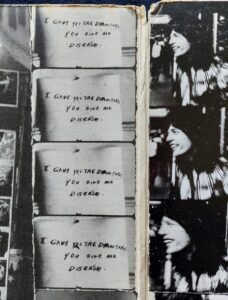 I GAVE YOU THE DIAMONDS
YOU GIVE ME
DISEASE.
I GAVE YOU THE DIAMONDS
YOU GIVE ME
DISEASE.
I GAVE YOU THE DIAMONDS
YOU GIVE ME
DISEASE.
I GAVE YOU THE DIAMONDS
YOU GIVE ME
DISEASE.